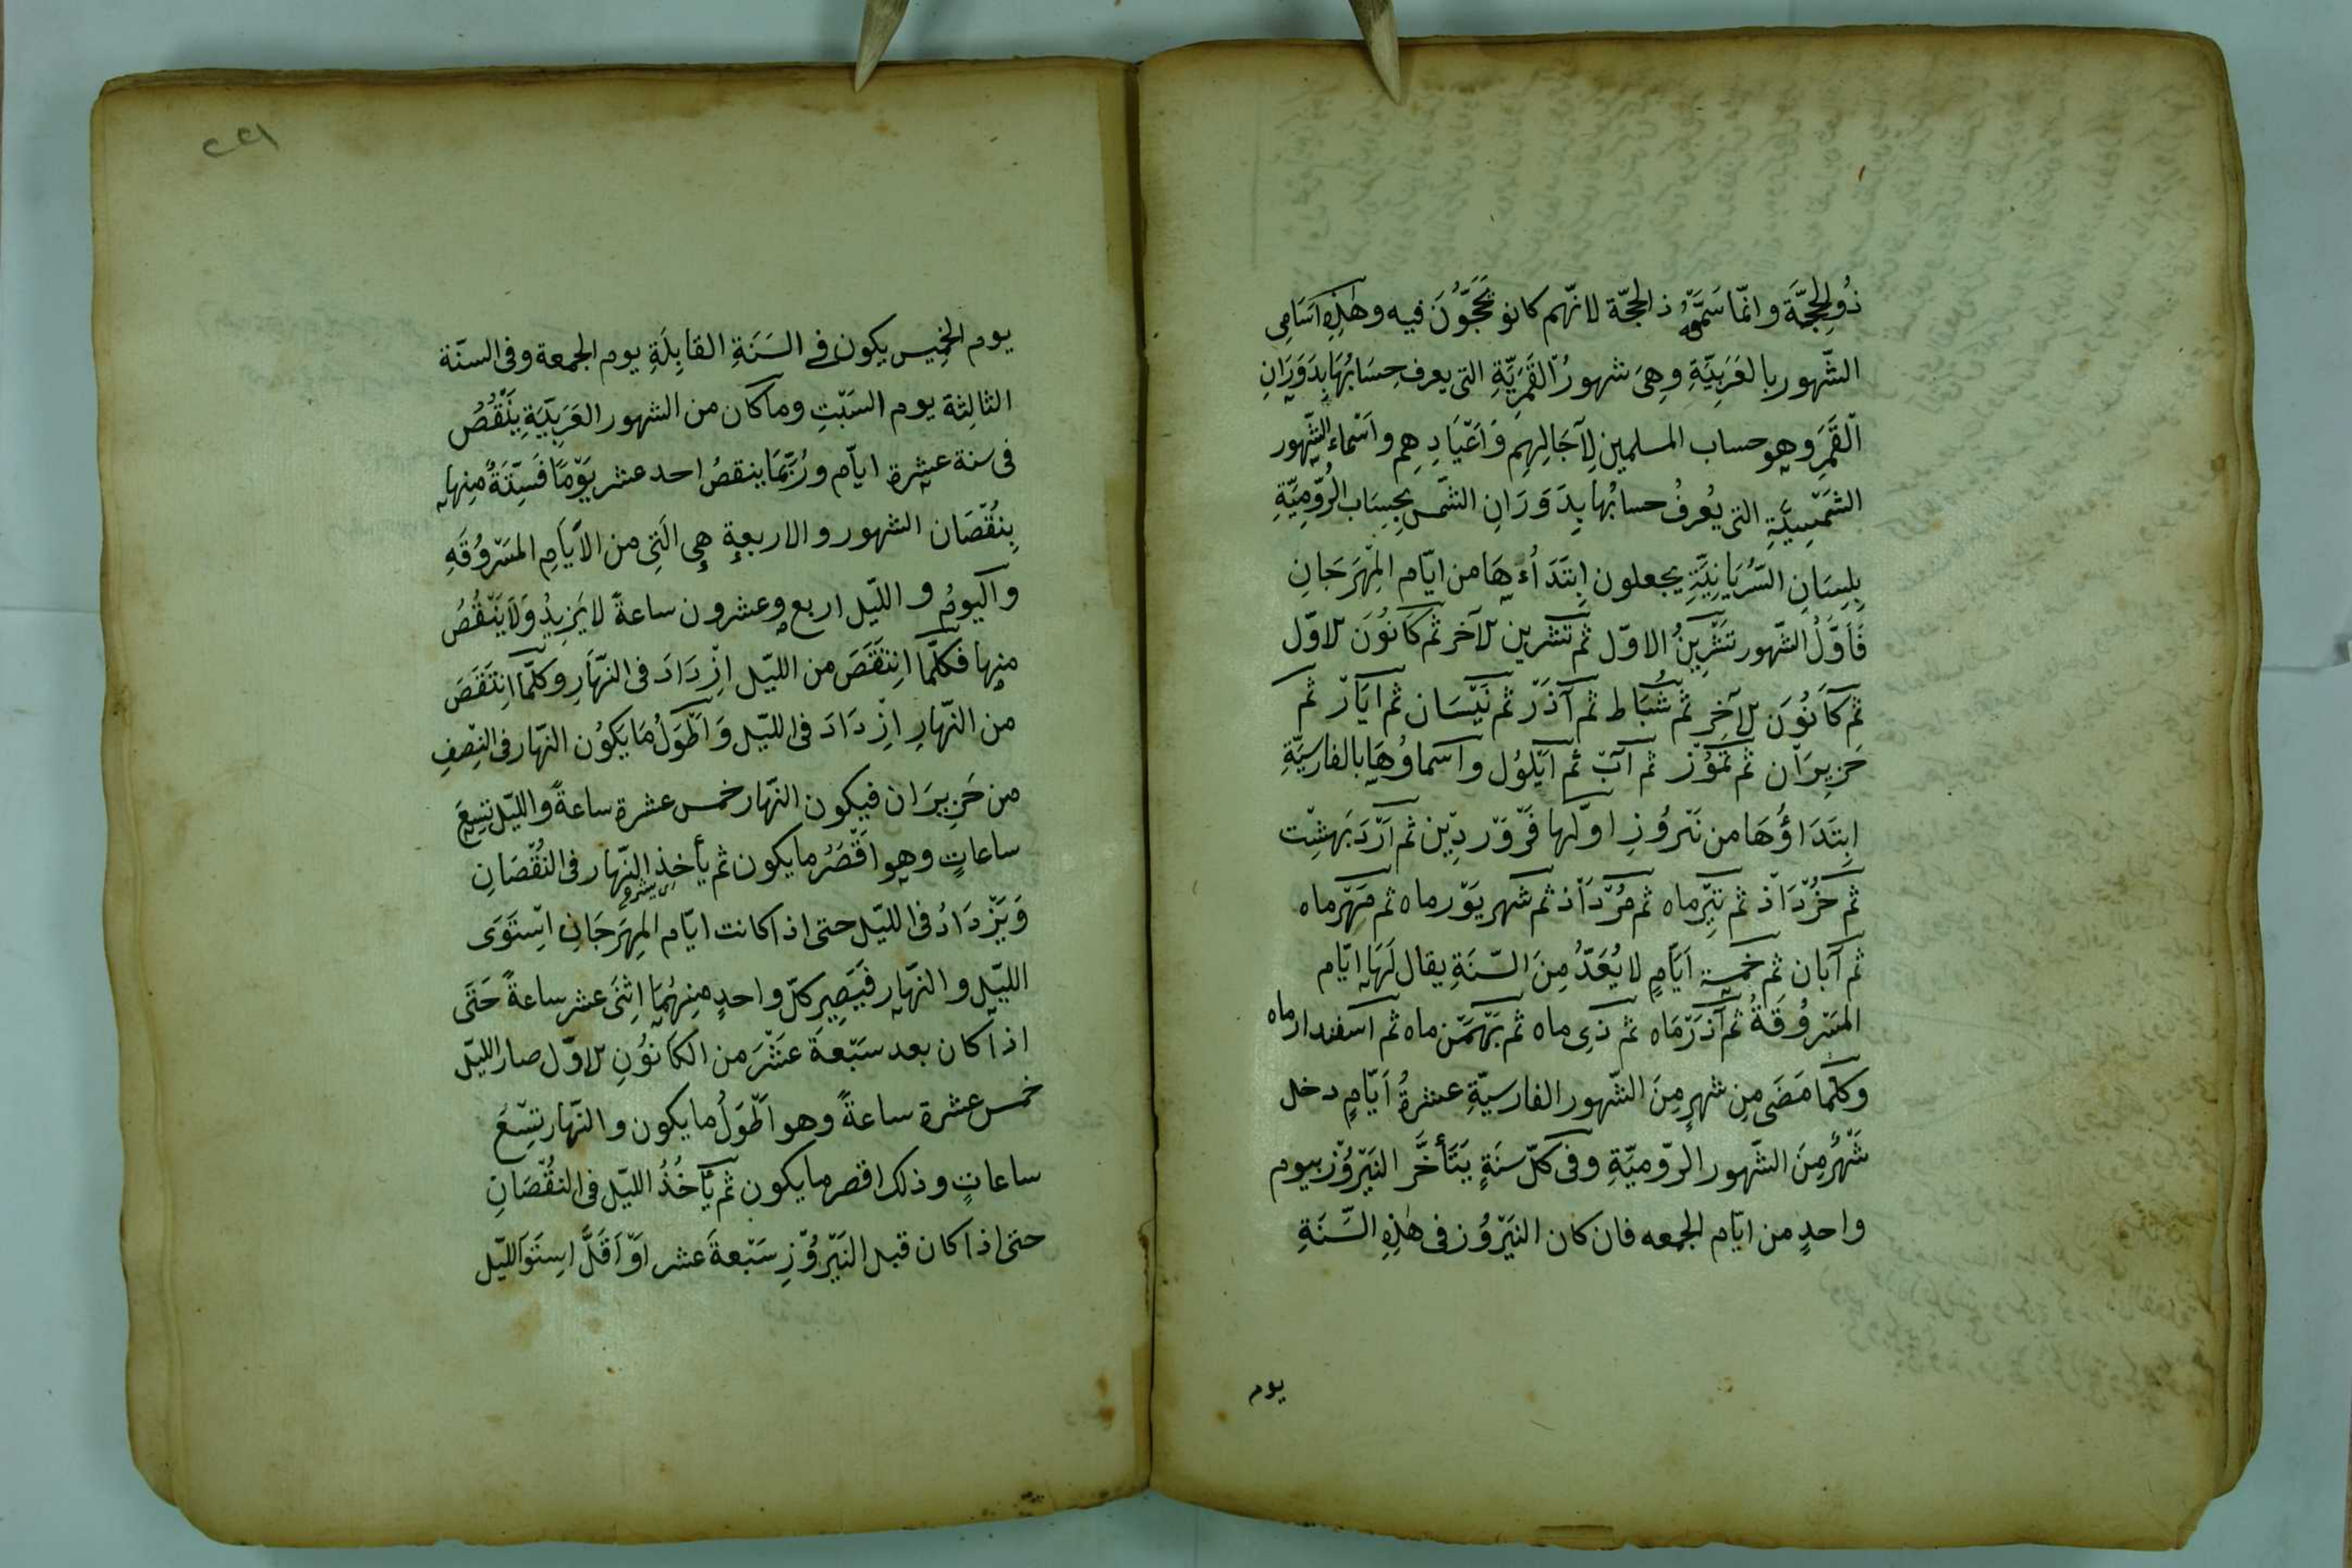 ذُو الحِجَّةَ وانّما سَمّوه ذ الحجّة لانّهم كانو يَحَجّوُنَ فيه وهٰذِهِ اَسَامِى
الشّهور بالعَرَبِيّةِ وهِىَ شهورُ القَمَرِيّةِ التى يعرف حِسَابُهَا بِدَوَرَانِ
القَمَرِ وهو حساب المسلمين لِآجَالِهِم وَاَعْيَادِهِم واَسْماء الشّهور
الشَمْسِيَّةِ التى يُعرفُ حسابُها بِدَوَرَانِ الشّمس بِحِسَاب الرُّوْمِيّةِ
بِلِسَانِ السُّرْيَانِيّةِ يجعلون اِبْتَدَاءَهَا من ايّام المِهْرَجَانِ
فَاَوَّلُ الشّهور تَشْرِينُ الاوّل ثم تشرين لآخر ثم كَانُوَن لاوّل
ثم كَانُوَن لآخِرِ ثم شُبَاط ثم آذَرْ ثم نَيْسَان ثم ايَارْ ثم
حَزِيرَان ثم تمّوُزْ ثم آبْ ثم اَيْلوُل واَسَماوُهَا بالفارسيّةِ
اِبتَدَاؤُهَا من نَيرُوزِ اوّلها فَرْوَرْدِيْن ثم اَرْدَبَهِشْت
ثم خُرْدَاذْ ثم تِيْرماه ثم مُرْدَاْذ ثم شهريَوْرماه ثم مَهْرماه
ثم آبان ثم خمسة اَيَّامٍ لا يُعَدُّ مِنَ السّنَةِ يقال لَهَا ايّام
المَسْرُوُقَةُ ثم آذَرْمَاه ثم ذى ماه ثم بَهْمَنْ ماه ثم اسفندارماه
وكلّما مَضَى مِن شهرٍ مِنَ الشّهور الفارسيّةِ عشرةُ اَيّامٍ دخل
شَهْرٌ مِنَ الشّهور الرّوميّةِ وفى كلّ سنَةٍ يَتَأَخَّر النَيْرُوْز بيوم
واحدٍ من ايّام الجمعه فان كان النَيْرُوُز فى هٰذِهِ السّنَةِ
يوم
٢٢١
يوم الخَمِيس يكون فى السَنَةِ القابِلَةِ يوم الجمعة وفى السنّة
الثالِثة يوم السَبْتِ وما كان من الشهور العَرَبِيّةِ يَنْقُصُ
فى سنة عشرة ايّام ورُبّمَا ينقصُ احد عشر يَوْمًا فَسِتّةٌ مِنها
بِنُقْصَان الشهور والاربعة هى الَتِى من الاَيّامِ المَسْرُوُقَهِ
واليومُ والليّل اربع وعشرون ساعةً لا يَزِيدُ وَلَا يَنْقُصُ
منها فكلّما اِنتَقَصَ من الليّل اِزْدَادَ فى النّهَارِ وكلّما اِنتَقَصَ
من النّهارِ اِزْدَادَ فى الليّل وَاَطْوَلُ مَا يَكوُن النّهار فى النِصْفِ
من حَزِيرَان فيكون النّهار خمس عشرة ساعةً والليّل تِسعَ
ساعاتٍ وهو اقْصَرُ ما يكون ثم يأخذ النّهار فى النُقْصَانِ
وَيَزْدَادُ فى الليّل حتى اذا كانت ايّام المِهَرجَانِ اِسْتَوَى
الليّل والنهار فيَصِير كلّ واحدٍ مِنهُمَا اِثْنَى عشر ساعةً حَتّى
اذا كان بعد سَبْعةَ عَشَرَ من الكَانُوُنِ لاوّل صار الليّل
خمس عشرة ساعةً وهو اَطْوَلُ ما يكون والنّهار تِسْعَ
ساعاتٍ وذلك اقصر ما يكون ثم يَأخُذُ الليّل فى النُقْصَانِ
حتى اذا كان قبل النَيْرُوْزِ سَبْعةَ عشر اَوْ اَقَلَّ اِستَوَ الليّل